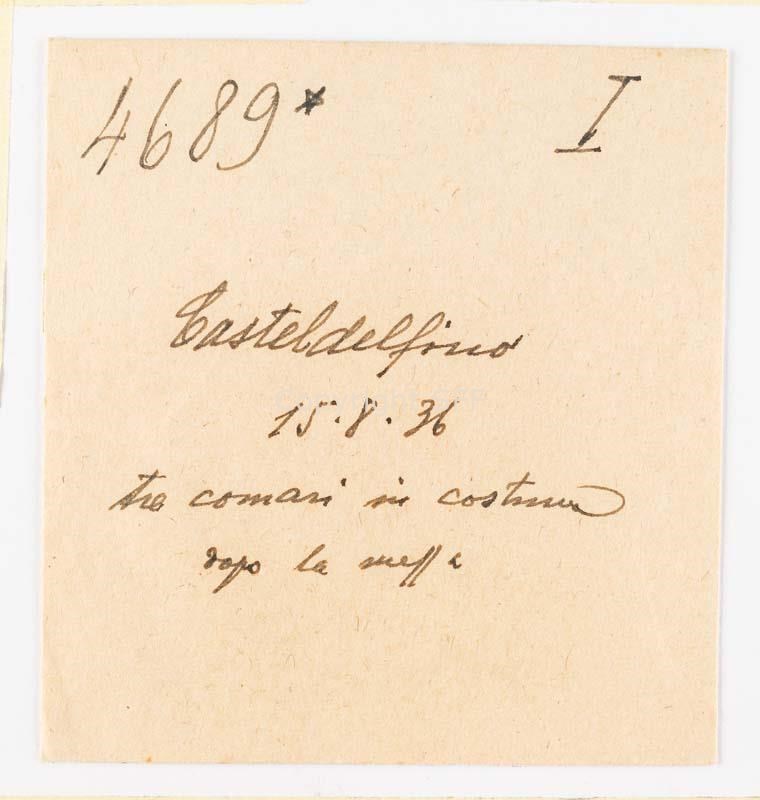 4689* I
Casteldelfino
15.8.36
tre comari in costume
dopo la messa